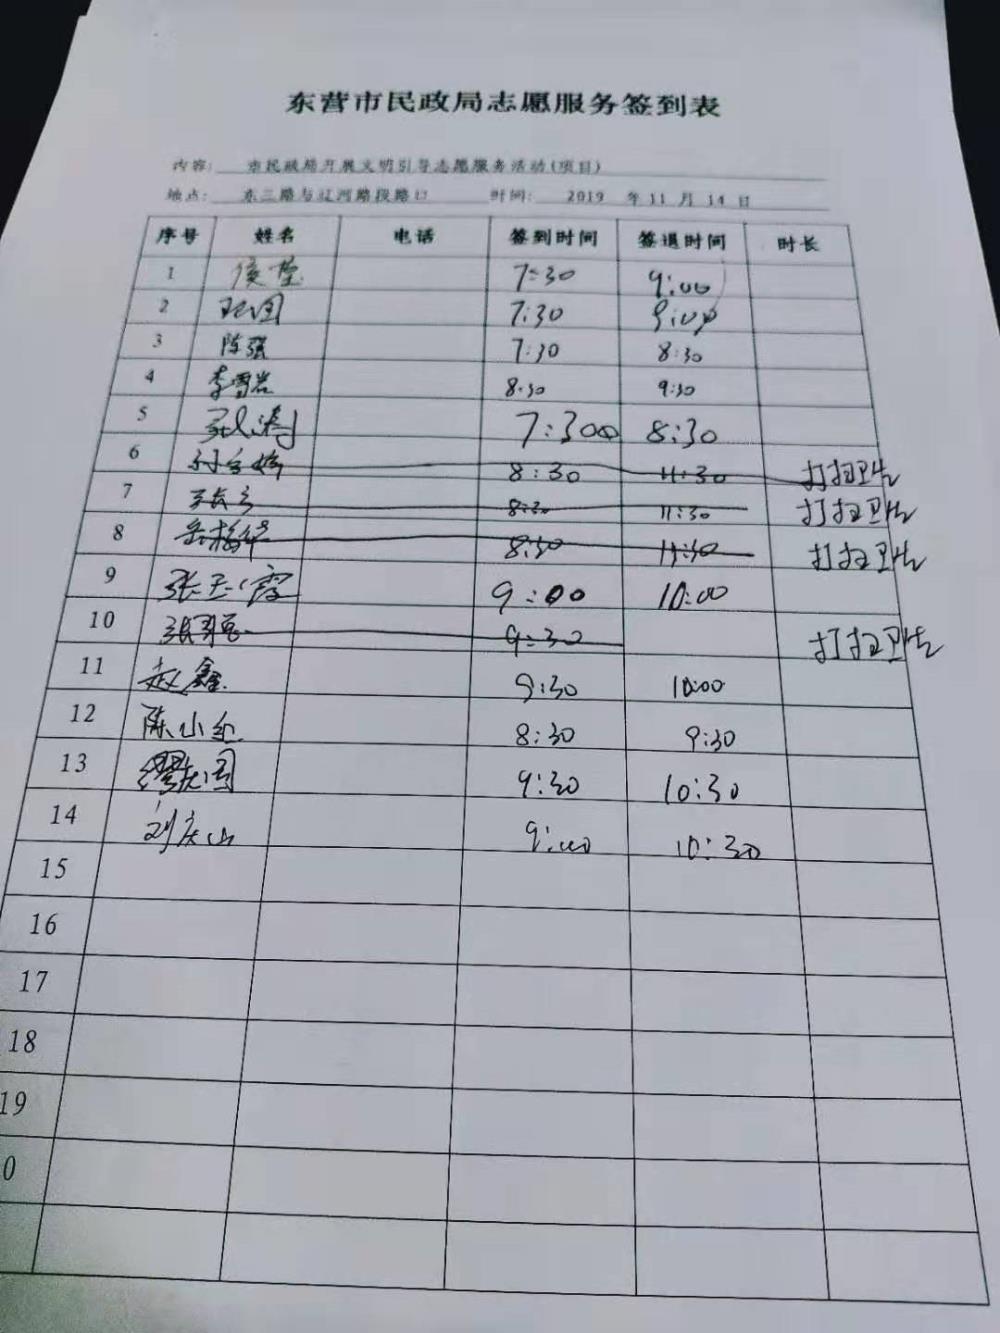 东营市民政局志愿服务签到表
内容: 市民政局开展文明引导志愿服务活动(项目)
地点: 东三路与辽河路段路口 时间: 2019 年 11 月 14 日
序号 姓名 电话 签到时间 签退时间 时长
1 7:30 9:00
2 7:30 9:00
3 陈强 7:30 8:30
4 李雪岩 8:30 9:30
5 张涛 7:30 8:30
6 8:30 11:30 打扫卫生
7 8:30 11:30 打扫卫生
8 8:30 11:30 打扫卫生
9 张玉霞 9:00 10:00
10 9:30 打扫卫生
11 赵鑫 9:30 10:00
12 陈小红 8:30 9:30
13 9:30 10:30
14 刘庆山 9:00 10:30
15
16
17
18
19
0